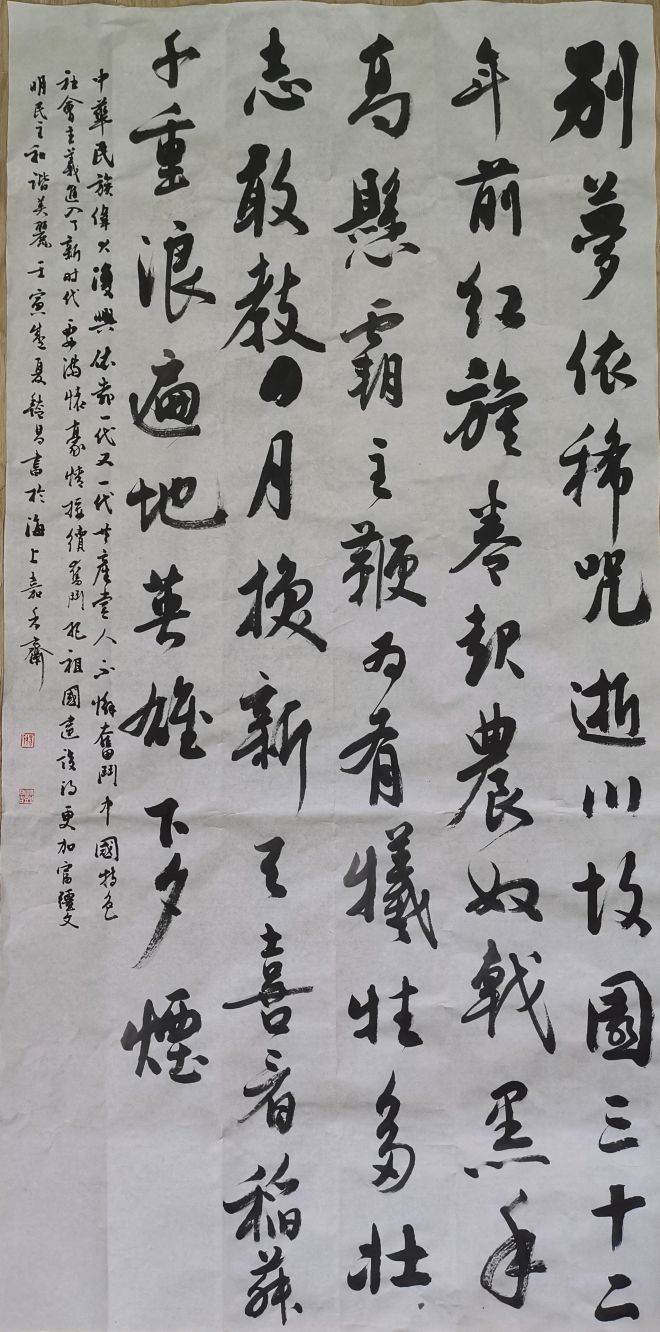 别夢依稀咒逝川故園三十二
年前红旗卷起農奴戟黑手
高懸霸主鞭为有犧牲多壮
志敢教日月换新天喜看稻菽
千重浪遍地英雄下夕煙
中華民族偉大復興依靠一代又一代共産党人不懈奮鬥中國特色
社會主義進入了新时代要满懷豪情接續奮鬥把祖國建設得更加富疆文
明民主和谐美麗壬寅盛夏昌書於海上嘉禾齋